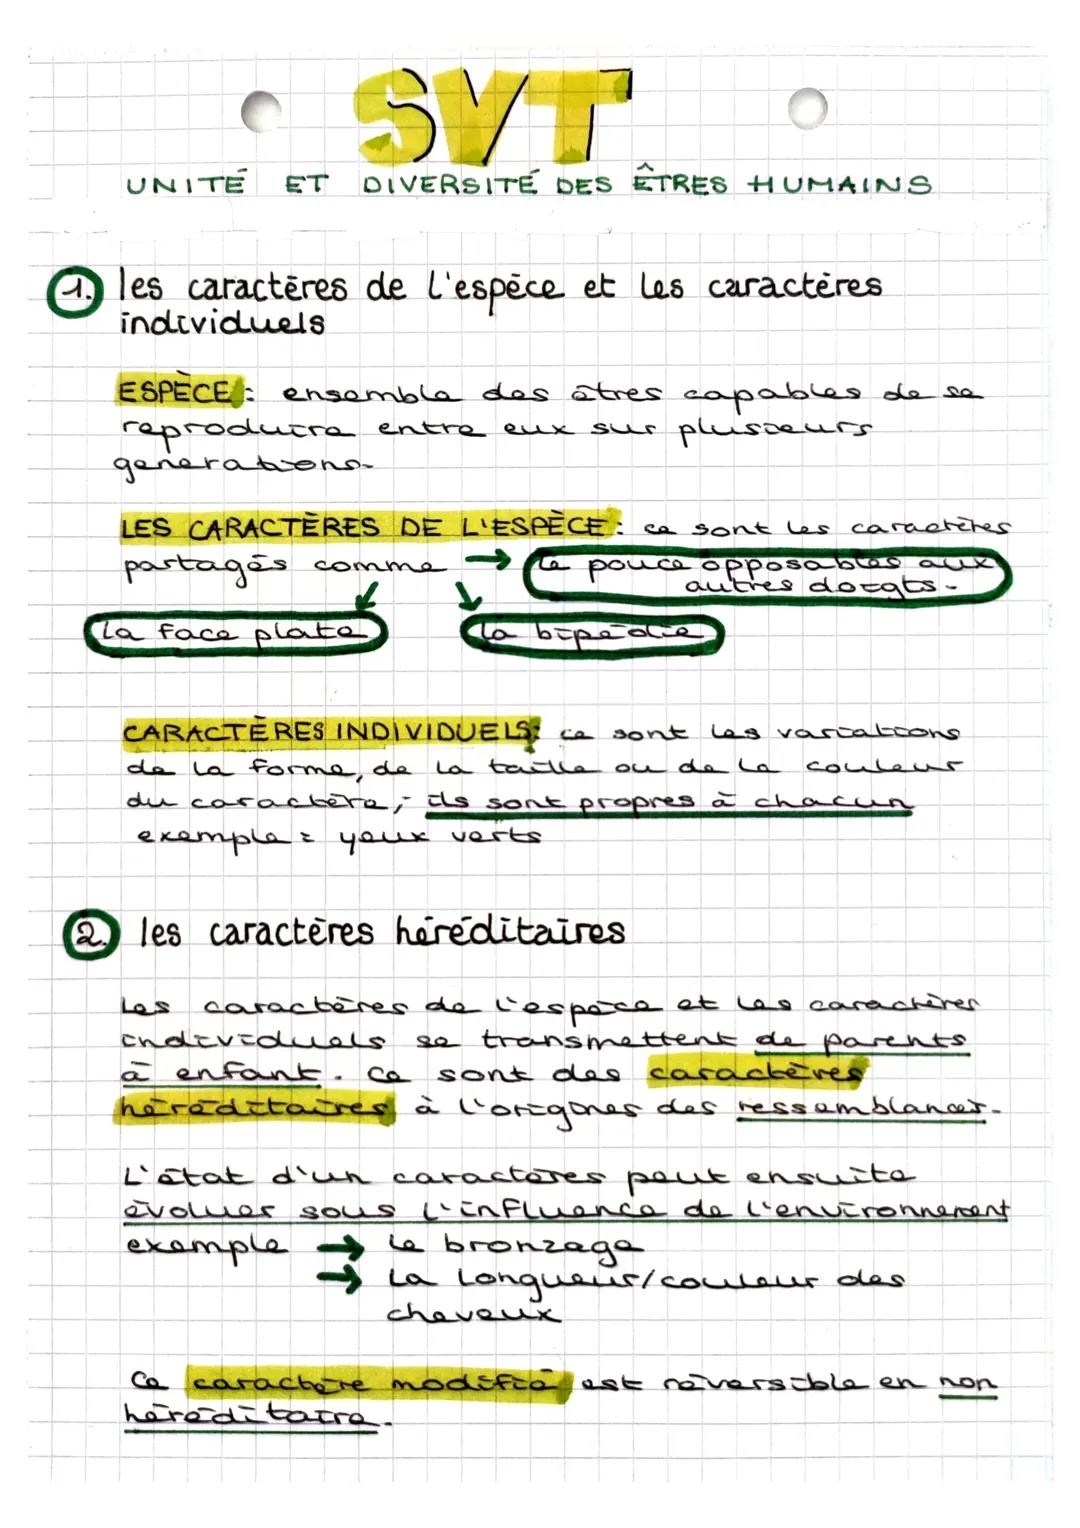 SVT
UNITÉ ET DIVERSITÉ DES ÊTRES HUMAINS
1. les caractères de l'espèce et les caractères
individuels
ESPÈCE : ensemble des êtres capables de se
reproduire entre eux sur plusieurs
generations.
LES CARACTÈRES DE L'ESPÈCE : ce sont les caractères
partagés comme → le pouce opposables aux
autres doigts.
la face plate
la bipédie
CARACTÈRES INDIVIDUELS: ce sont les variations
de la forme, de la taille ou de la couleur
du caractère, ils sont propres à chacun
exemple : yeux verts
2. les caractères héréditaires
Les caractères de l'espèce et les caractères
individuels se transmettent de parents
à enfant. Ce sont des caractères
héréditaires à l'origines des ressemblances.
L'état d'un caractères peut ensuite
évoluer sous l'influence de l'environnement
exemple → le bronzage
→ La longueur/couleur des
cheveux
Ce caractère modifié est réversible en non
héréditaire.